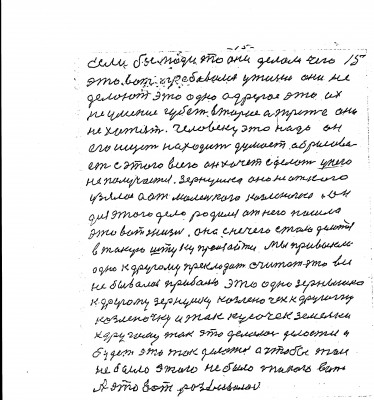 -15-
если бы люди то они делали чего 15
это вот прибавила у жизни они не
делают это одно а другое это их
не умение губет второе а трете они
не хотят. Человеку это надо он
его ищет находит думает, обрисова
ет с этого всего он хочет сделат у него
не получается. Зернушка она не откого
взялас а от маленького козлёночка. Он
для этого дело родился от него пошла
это вот жизнь. она с нечего стала
в такую штуку произайти Мы привыкли
одно к другому прикладат считат это вы
не бывалая прибыль это одно зернышко
к другому зернушку козленочек к другому
козленочку и так кусочек земельки
к другому так это делалос делается и
будет это так делатся а чтобы там
не было этого не было такого вот
А это вот